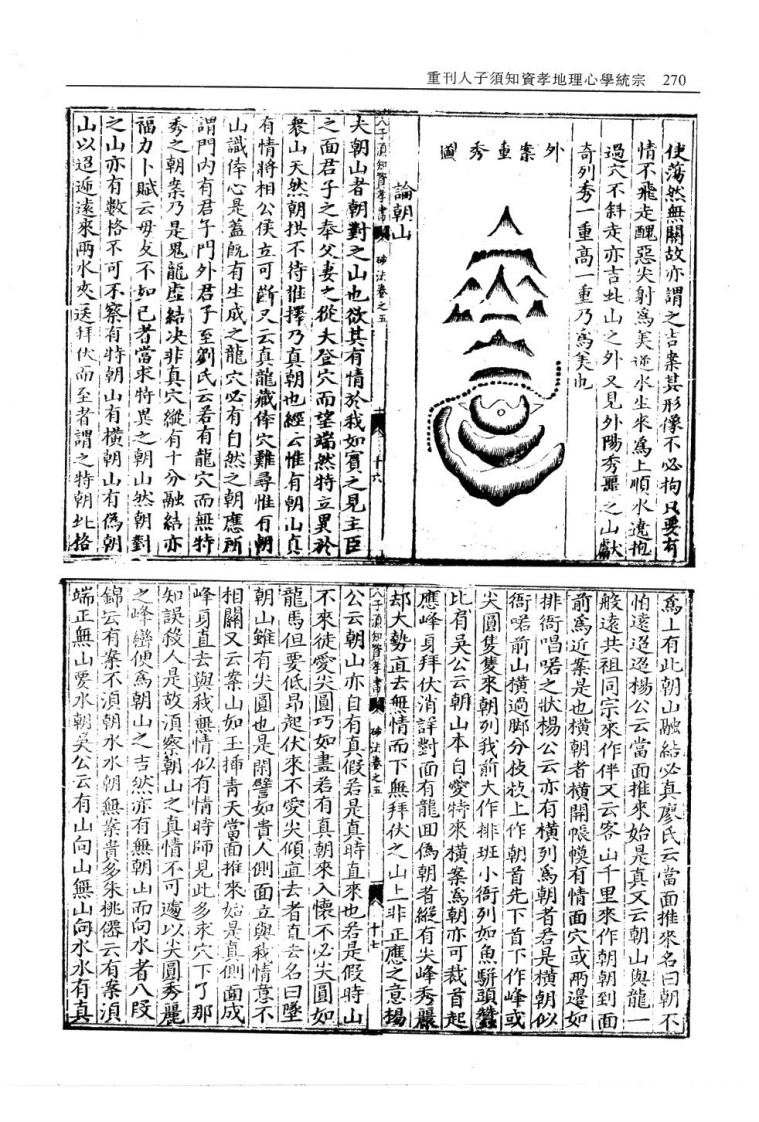 重刊人子須知資孝地理心學統宗 270
使蕩然無關故亦謂之吉案其形像不必拘只要有
情不飛走醜惡尖射爲美逆水生來爲上順水遶抱
過穴不斜走亦吉此山之外又見外陽秀麗之山獻
奇列秀一重高一重乃爲美也
外案重秀圖
論朝山
人子須知資孝書 砂法卷之五 十六
夫朝山者朝對之山也欲其有情於我如賓之見主臣
之面君子之奉父妻之從夫登穴而望端然特立異於
衆山天然朝拱不待惟擇乃真朝也經云惟有朝山真
有情將相公侯立可斷又云真龍藏倖穴難尋惟有朝
山識倖心是蓋既有生成之龍穴必有自然之朝應所
謂門內有君子門外君子至劉氏云若有龍穴而無特
秀之朝案乃是鬼龍虛結决非真穴縱有十分融結亦
福力卜賦云毋友不如己者當求特異之朝山然朝對
之山亦有數格不可不察有特朝山有橫朝山有僞朝
山以迢遞遠來兩水夾送拜伏而至者謂之特朝此格
爲上有此朝山融結必真廖氏云當面推來名曰朝不
怕遠迢迢楊公云當面推來始是真又云朝山與龍一
般遠共祖同宗來作伴又云客山千里來作朝朝到面
前爲近案是也橫朝者橫開帳幙有情面穴或兩邊如
排衙唱喏之狀楊公云亦有橫列爲朝者若是橫朝似
衙喏前山橫過脚分枝枝上作朝首先下首下作峰或
尖圓隻隻來朝列我前大作排班小衙列如魚駢頭蠶
比有吳公云朝山本自愛特來橫案爲朝亦可裁首起
應峰身拜伏消詳對面有龍囬僞朝者縱有尖峰秀麗
却大勢直去無情而下無拜伏之山上非正應之意楊
人子須知資孝書 砂法卷之五 十七
公云朝山亦自有真假若是真時直來也若是假時山
不來徒愛尖圓巧如畫若有真朝來入懷不必尖圓如
龍馬但要低昂起伏來不愛尖傾直去者直去名曰墜
朝山雖有尖圓也是閑譬如貴人側面立與我情意不
相關又云案山如玉揷青天當面推來始是真側面成
峰身直去與我無情似有情時師見此多求穴下了那
知誤殺人是故湏察朝山之真情不可遽以尖圓秀麗
之峰巒便爲朝山之吉然亦有無朝山而向水者八段
錦云有案不湏朝水水朝無案貴多朱桃僊云有案湏
端正無山要水朝吳公云有山向山無山向水水有真